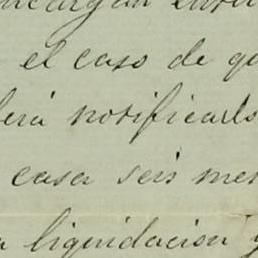 el caso de q
erá notificarlo
casa seis mes
liquidacion y